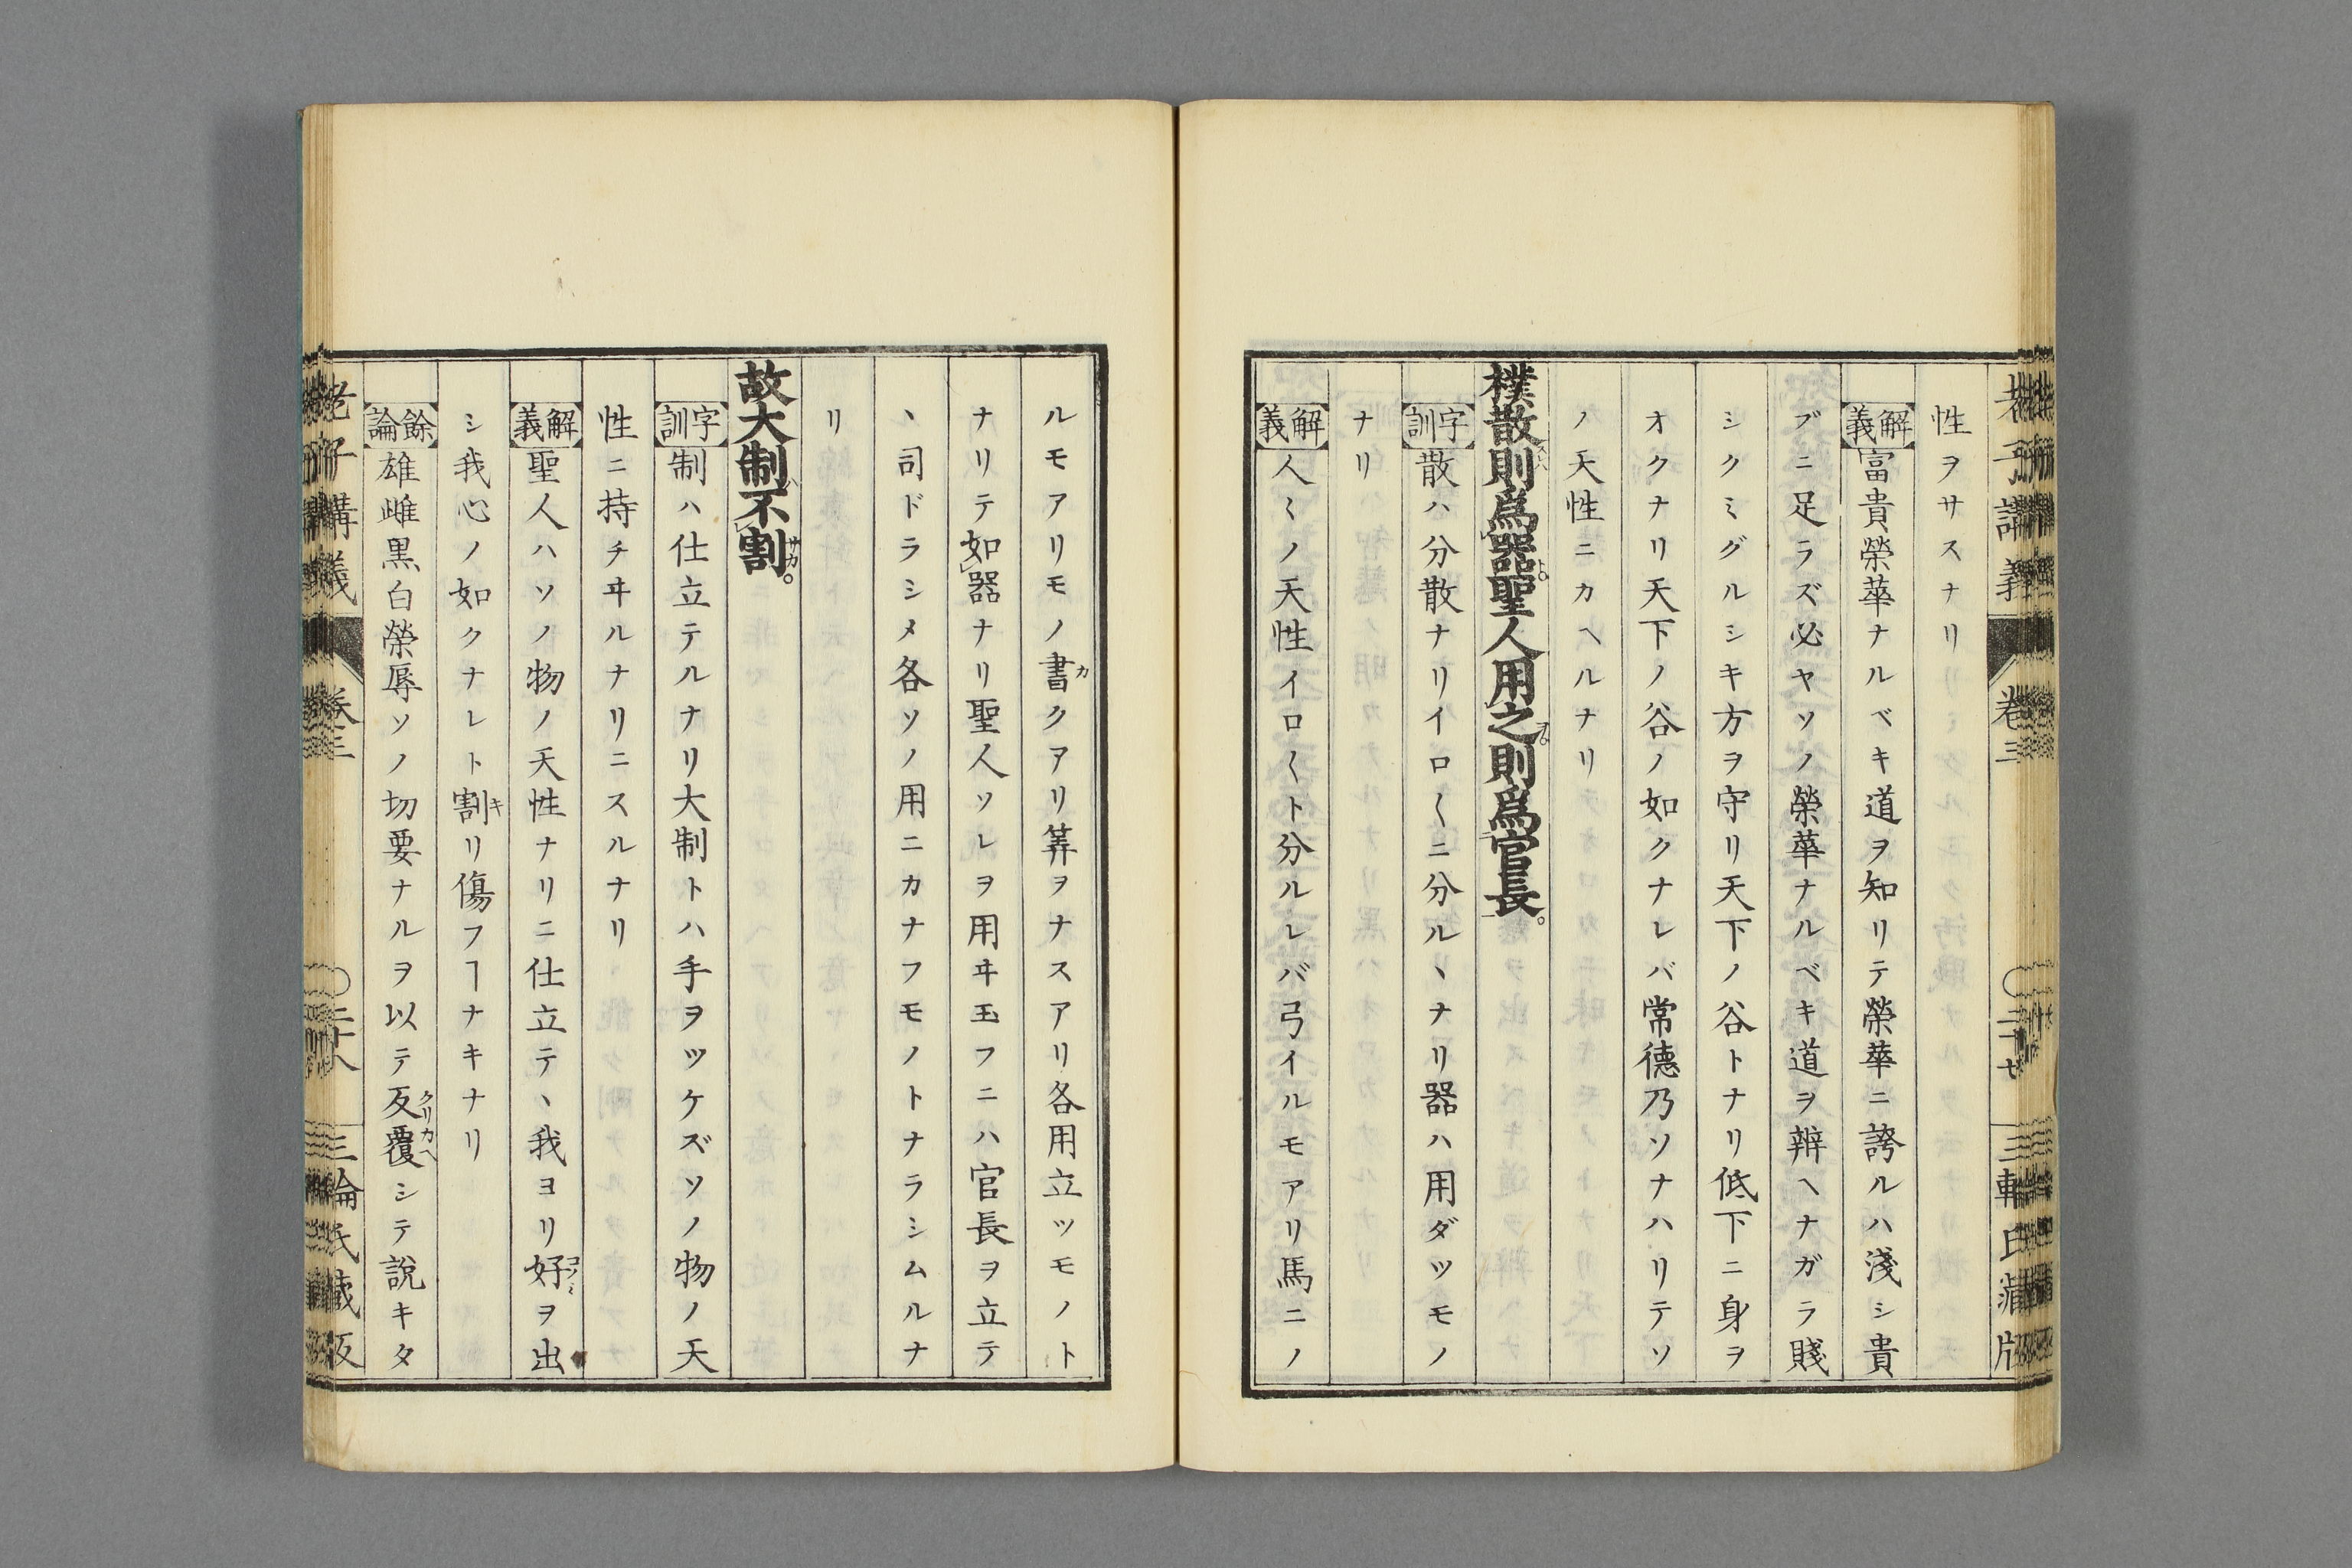 老子講義 卷三 〇二十七 三輪氏藏版
性ヲサスナリ
解義 富貴榮華ナルベキ道ヲ知リテ榮華ニ誇ルハ淺シ貴
ブニ足ラズ必ヤソノ榮華ナルベキ道ヲ辨ヘナガラ賤
シクミグルシキ方ヲ守リ天下ノ谷トナリ低下ニ身ヲ
オクナリ天下ノ谷ノ如クナレバ常德乃ソナハリテソ
ノ天性ニカヘルナリ
樸散則爲器聖人用之則爲官長。
字訓 散ハ分散ナリイロ〱ニ分ルヽナリ器ハ用ダツモノ
ナリ
解義 人〻ノ天性イロ〱ト分ルレバ弓イルモアリ馬ニノ
ルモアリモノ書クアリ筭ヲナスアリ各用立ツモノト
ナリテ如器ナリ聖人ソレヲ用ヰ玉フニハ官長ヲ立テ
ヽ司ドラシメ各ソノ用ニカナフモノトナラシムルナ
リ
故大制不割。
字訓 制ハ仕立テルナリ大制トハ手ヲツケズソノ物ノ天
性ニ持チヰルナリニスルナリ
解義 聖人ハソノ物ノ天性ナリニ仕立テヽ我ヨリ好ヲ出
シ我心ノ如クナレト割リ傷フヿナキナリ
餘論 雄雌黒白榮辱ソノ切要ナルヲ以テ反覆シテ說キタ
老子講義 卷三 〇二十八 三輪氏藏版